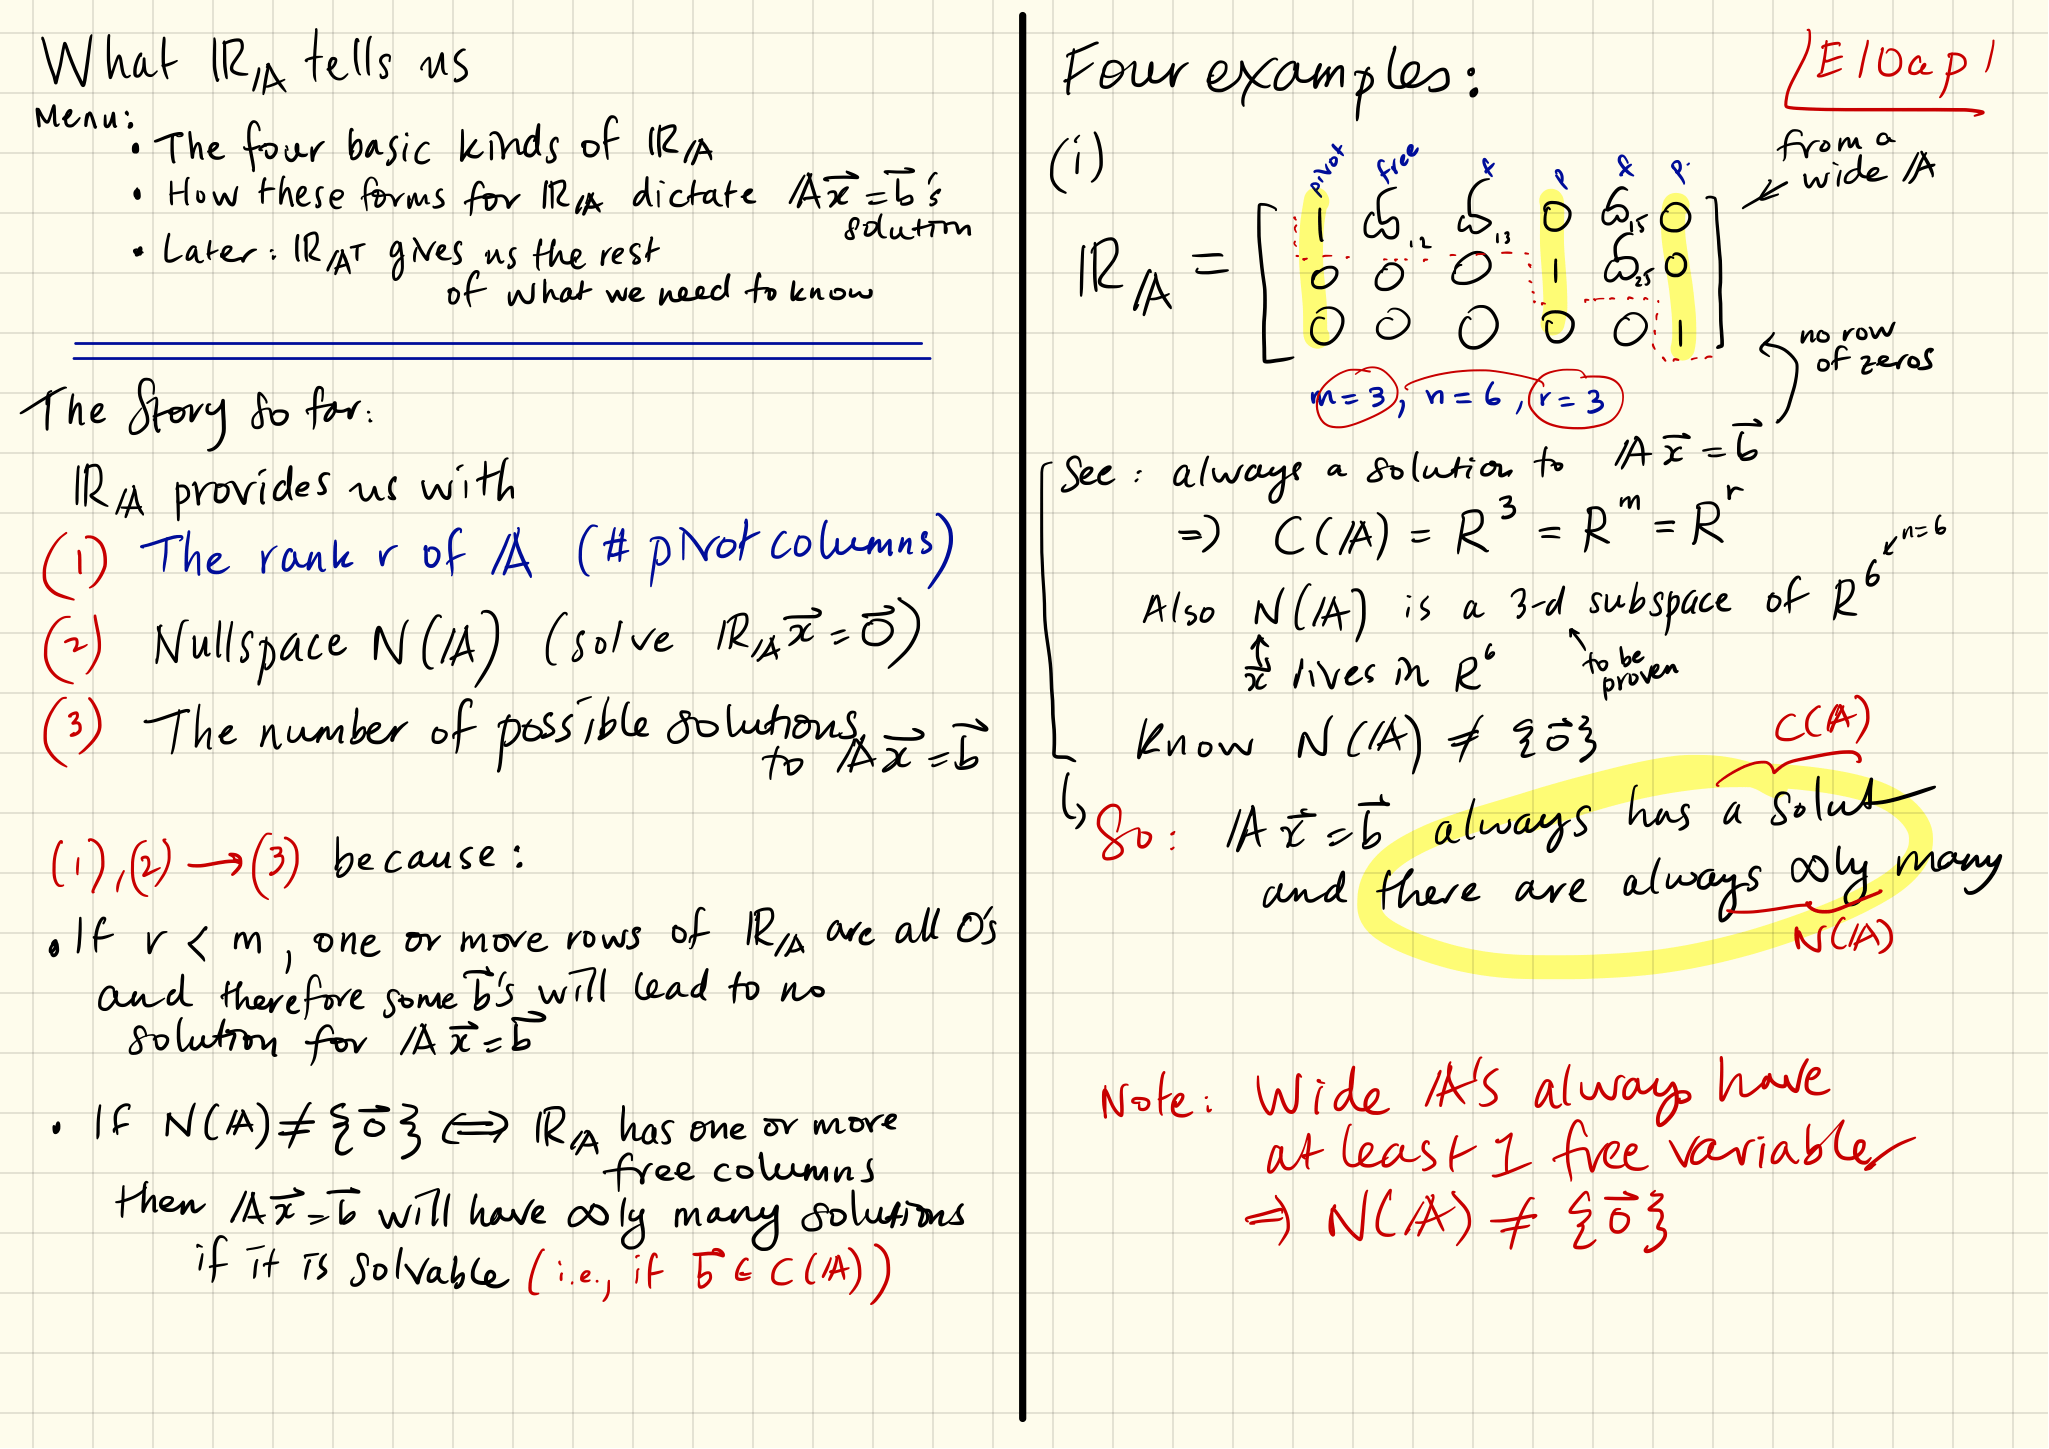 What ℝ_𝔸 tells us
Menu:
• The four basic kinds of ℝ_𝔸
• How these forms for ℝ_𝔸 dictate 𝔸x⃗ = b⃗'s
solution
• Later: ℝ_𝔸ᵀ gives us the rest
of what we need to know
The Story so far:
ℝ_𝔸 provides us with
(1) The rank r of 𝔸 (# pivot columns)
(2) Nullspace N(𝔸) (solve ℝ_𝔸 x⃗ = 0⃗)
(3) The number of possible solutions
to 𝔸x⃗ = b⃗
(1),(2) → (3) because:
• If r < m, one or more rows of ℝ_𝔸 are all 0's
and therefore some b⃗'s will lead to no
solution for 𝔸x⃗ = b⃗
• If N(𝔸) ≠ {0⃗} ⟺ ℝ_𝔸 has one or more
free columns
then 𝔸x⃗ = b⃗ will have ∞ly many solutions
if it is solvable (i.e., if b⃗ ∈ C(𝔸))
Four examples:
E10a p1
(i)
pivot free f p f p.
from a
wide 𝔸
ℝ_𝔸 =
1 ω₁₂ ω₁₃ 0 ω₁₅ 0
0 0 0 1 ω₂₅ 0
0 0 0 0 0 1
no row
of zeros
m = 3, n = 6, r = 3
See: always a solution to 𝔸x⃗ = b⃗
⇒ C(𝔸) = R³ = Rᵐ = Rʳ
n=6
Also N(𝔸) is a 3-d subspace of R⁶
x⃗ lives in R⁶
to be
proven
Know N(𝔸) ≠ {0⃗}
C(𝔸)
So: 𝔸x⃗ = b⃗ always has a solut
and there are always ∞ly many
N(𝔸)
Note: Wide 𝔸's always have
at least 1 free variable
⇒ N(𝔸) ≠ {0⃗}